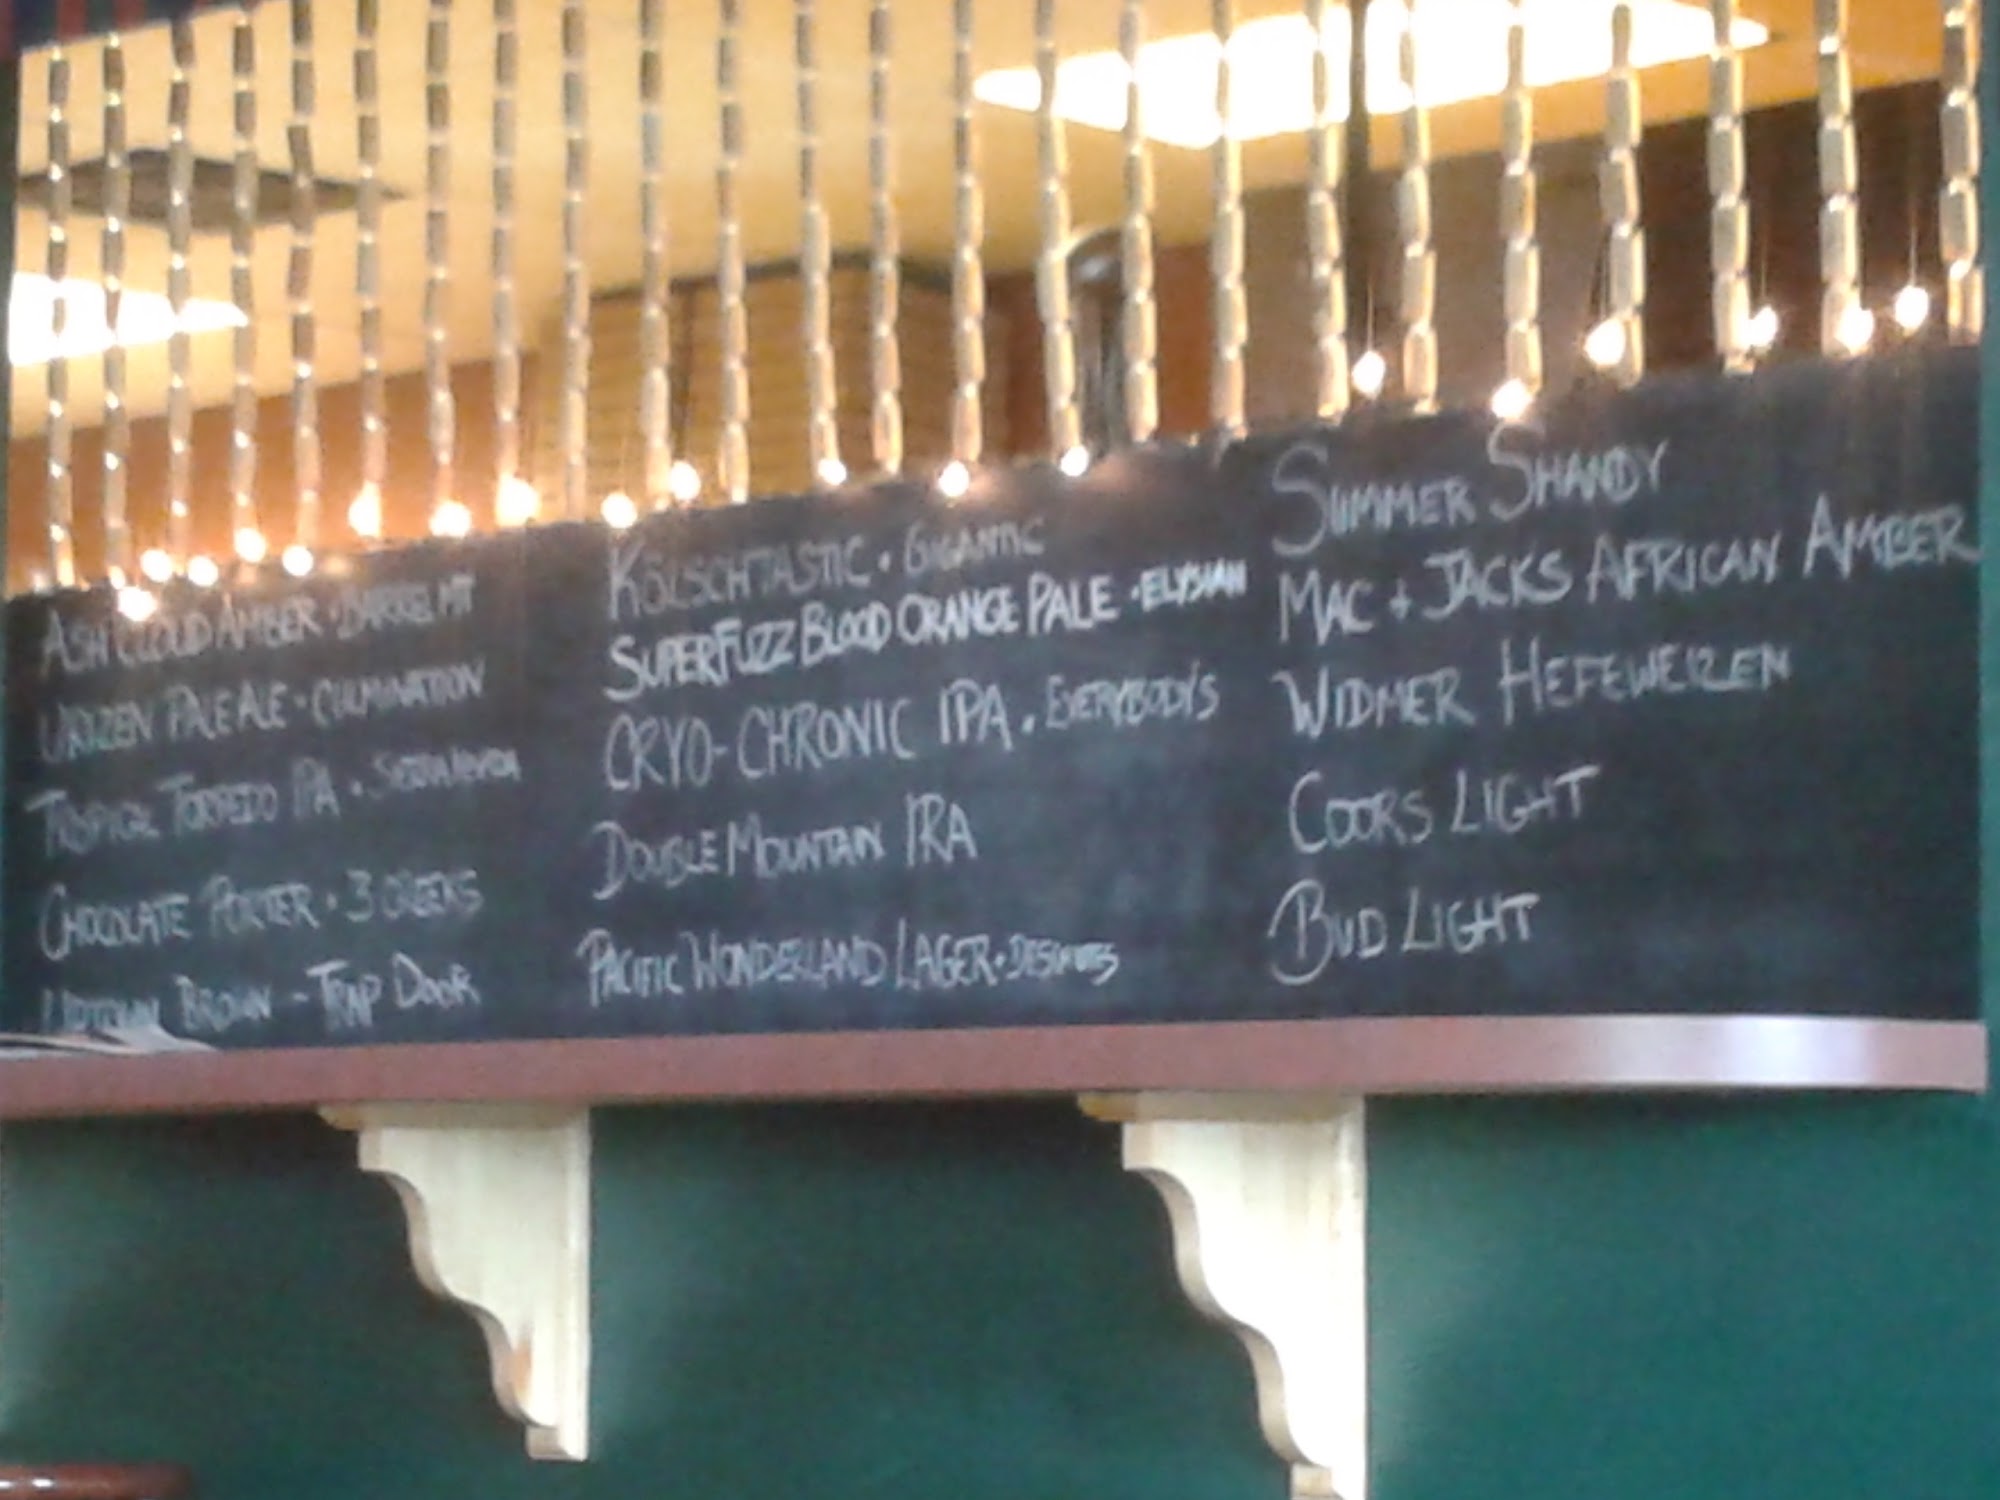 ASH CLOUD AMBER • BARREL MT
PALE ALE • CULMINATION
TROPICAL TORPEDO IPA • SIERRA NEVADA
CHOCOLATE PORTER • 3 CREEKS
UPTOWN BROWN - TRAP DOOR
KÖLSCHTASTIC • GIGANTIC
SUPERFUZZ BLOOD ORANGE PALE • ELYSIAN
CRYO-CHRONIC IPA • EVERYBODY'S
DOUBLE MOUNTAIN IRA
PACIFIC WONDERLAND LAGER • DESCHUTES
SUMMER SHANDY
MAC + JACKS AFRICAN AMBER
WIDMER HEFEWEIZEN
COORS LIGHT
BUD LIGHT